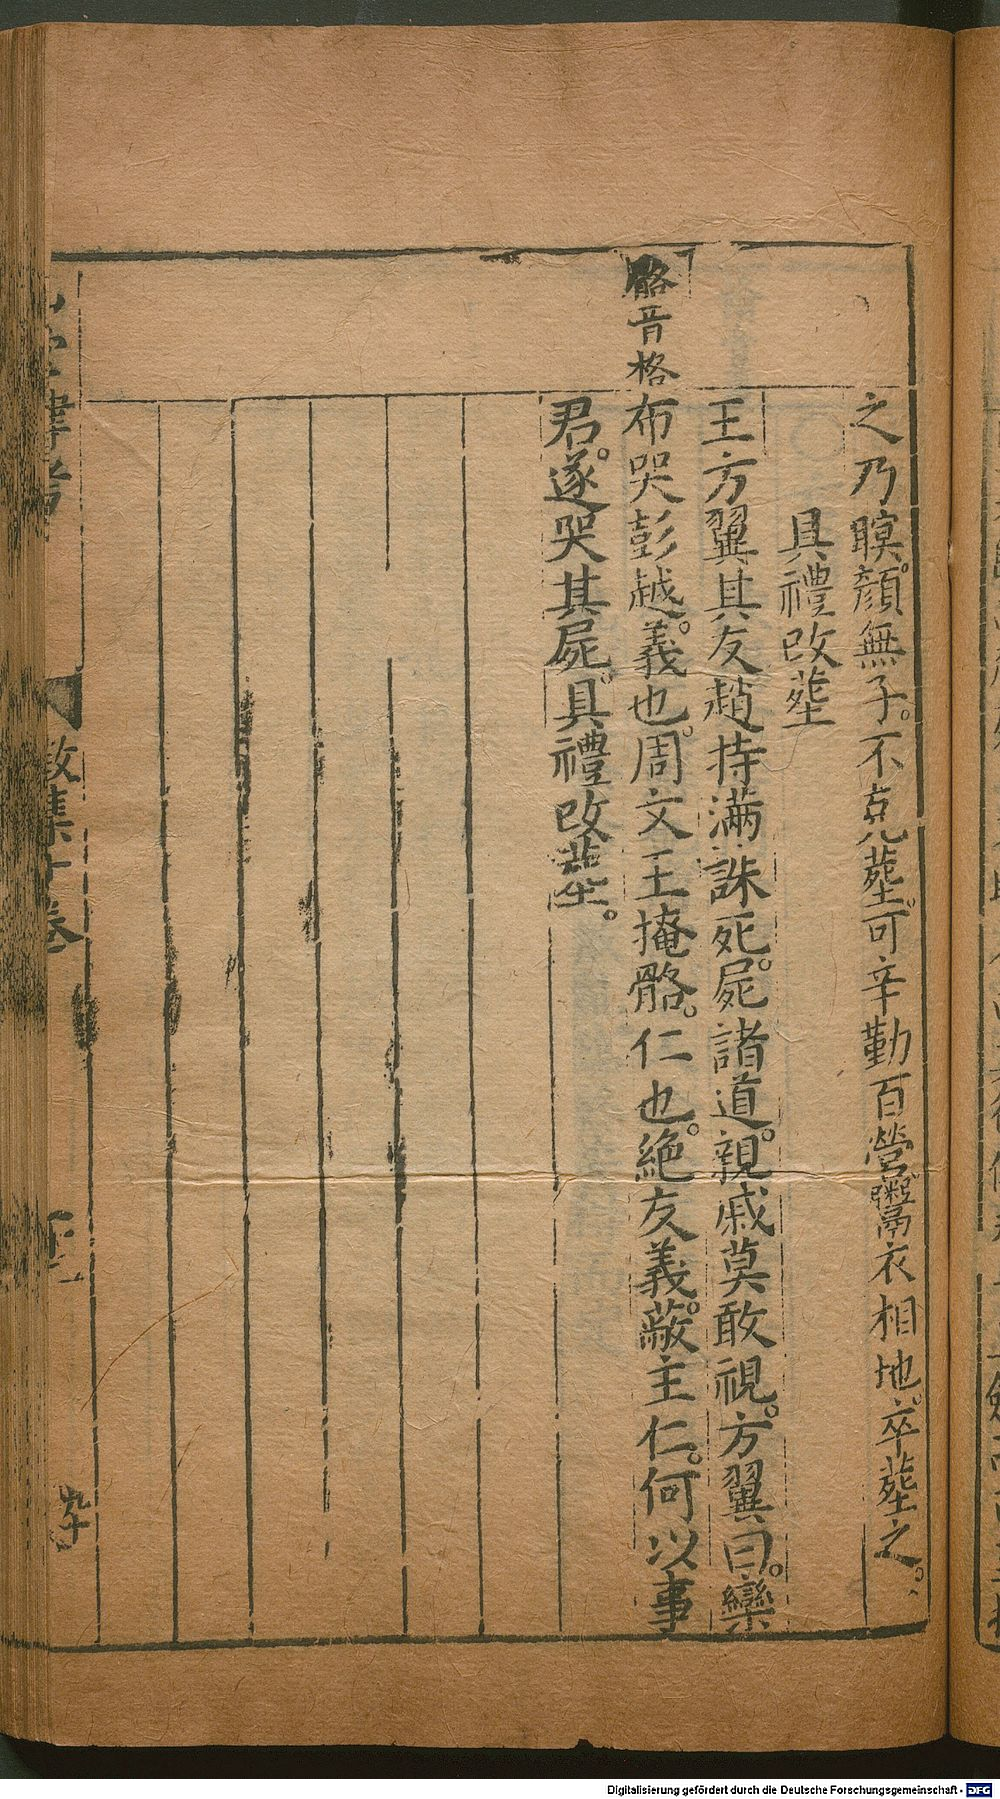 之乃瞑。顏無子。不克塟。可辛勤百營鬻衣相地。卒塟之。
具禮改塟
王方翼其友趙持滿誅死。屍諸道。親戚莫敢視。方翼曰。欒
骼音格
布哭彭越。義也。周文王掩骼。仁也。絶友義。蔽主仁。何以事
君。遂哭其屍。具禮改塟。
集十卷
Digitalisierung gefördert durch die Deutsche Forschungsgemeinschaft - DFG